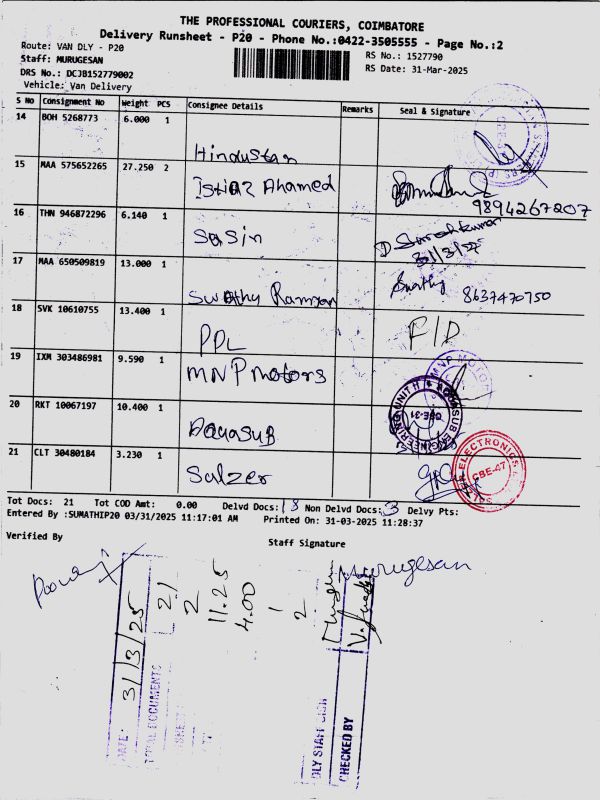 THE PROFESSIONAL COURIERS, COIMBATORE
Delivery Runsheet - P20 - Phone No.:0422-3505555 - Page No.:2
Route: VAN DLY - P20
RS No.: 1527790
Staff: MURUGESAN
RS Date: 31-Mar-2025
DRS No.: DCJB152779002
Vehicle: Van Delivery
S No Consignment No Weight PCS Consignee Details Remarks Seal & Signature
14 BOH 5268773 6.000 1 Hindustan
15 MAA 575652265 27.250 2 Istiaz Ahamed 9894267207
16 THN 946872296 6.140 1 Sasin D Sureshkumar 31/3/25
17 MAA 650509819 13.000 1 Swathy Raman Swathy 8637470750
18 SVK 10610755 13.400 1 PPL F/D
19 IXM 303486981 9.590 1 MNP Motors MNP MOTORS
20 RKT 10067197 10.400 1 AQUASUB ENGINEERING UNIT II CBE-31
21 CLT 30480184 3.230 1 Salzer SALZER ELECTRONICS CBE-47
Tot Docs: 21 Tot COD Amt: 0.00 Delvd Docs: 18 Non Delvd Docs: 3 Delvy Pts:
Entered By :SUMATHIP20 03/31/2025 11:17:01 AM Printed On: 31-03-2025 11:28:37
Verified By
Staff Signature
Murugesan
DATE: 31/3/25
TOTAL DOCUMENTS 21
2
11.25
4.00
1
2
DLY STAFF SIGN
CHECKED BY